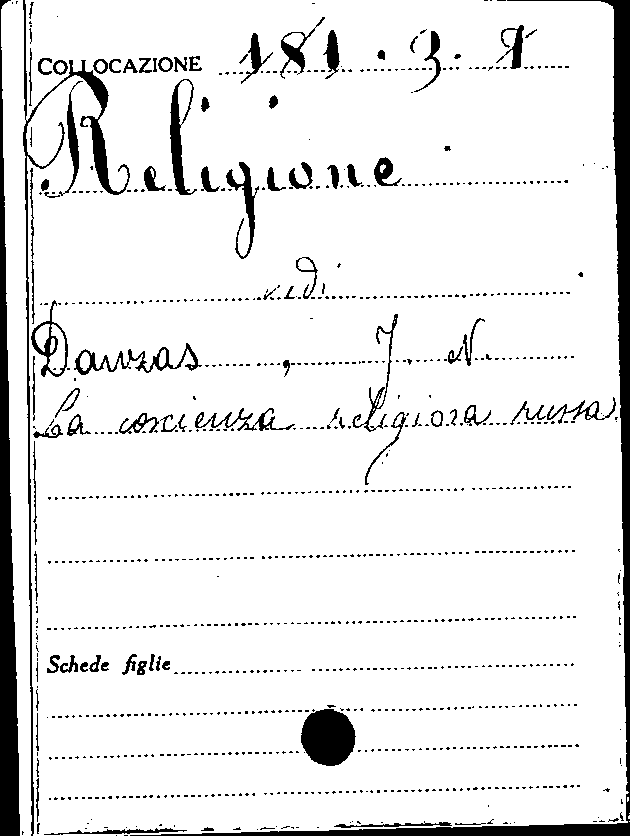 COLLOCAZIONE 181 . 3. 9
Religione
vedi
Danzas, J. N.
La coscienza religiosa russa
Schede figlie